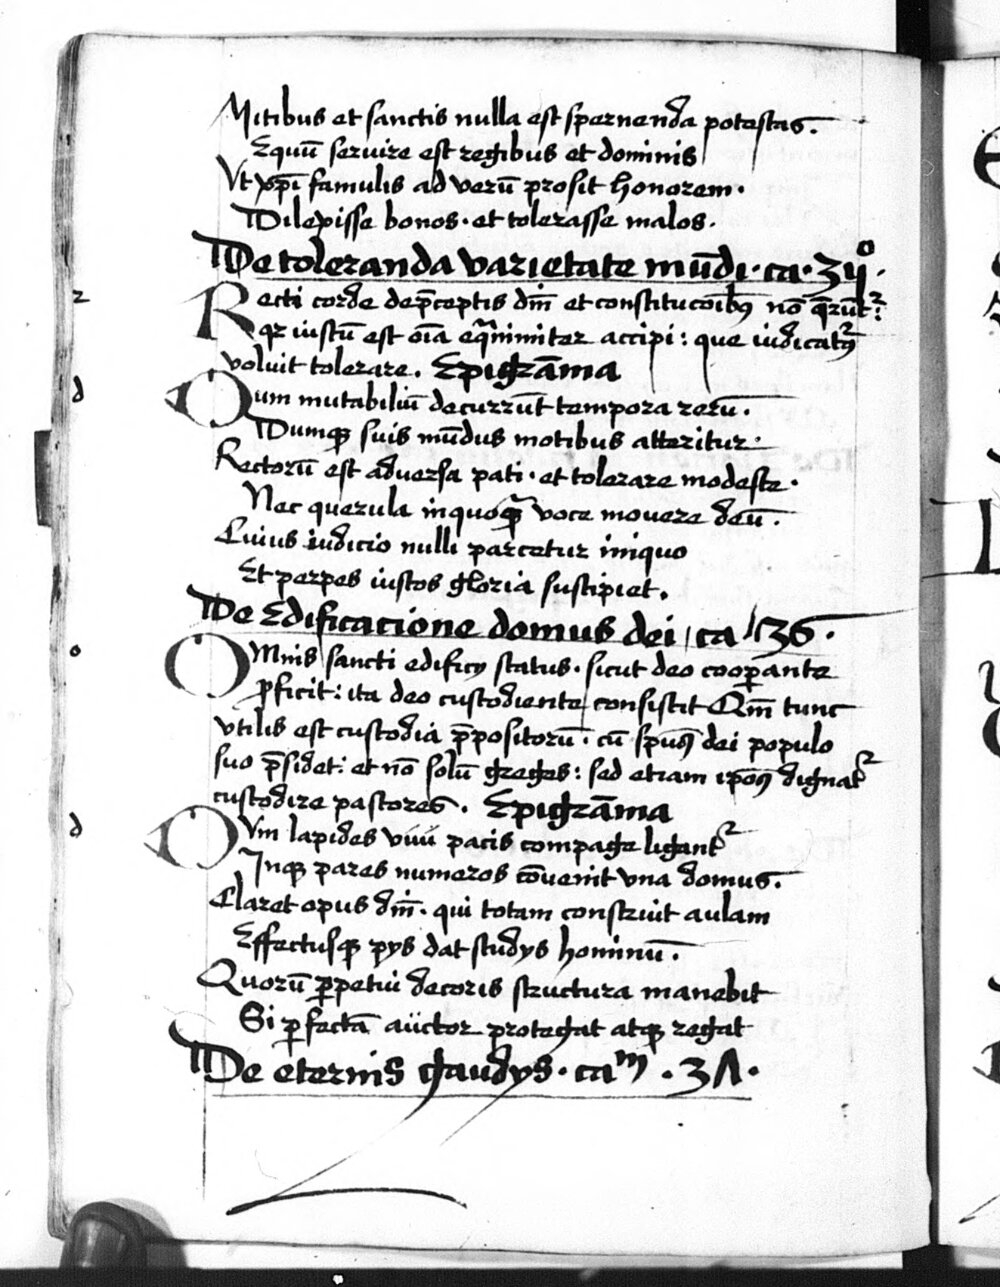 Mitibus et sanctis nulla est spernenda potestas.
Equū seruire est regibus et dominis
Vt xp̄i famulis ad verū prosit honorem.
Dilexisse bonos. et tolerasse malos.
De toleranda varietate mūdi. ca. 3yº.
2
Recti corde de p̄ceptis dn̄i et constitucōibꝯ nō q̄rūt²:
qꝛ iustū est oīa eq̄nimiter accipi: que iudicatꝯ
voluit tolerare. Epigrāma
d
Dum mutabiliū decurrūt tempora rerū.
Dumqꝫ suis mūdus motibus atteritur.
Rectorū est aduersa pati. et tolerare modeste.
Nec querula inquoqꝫ voce mouere deū.
Cuius iudicio nulli parcetur iniquo
Et perpes iustos gloria suscipiet.
De Edificacione domus dei ca 36.
o
Omnis sancti edificij status. sicut deo cooꝑante
ꝑficit: ita deo custodiente consistit Qm̄ tunc
vtilis est custodia p̄positorū. cū sp̄us dei populo
suo p̄sidet: et nō solū greges: sed etiam ip̄os dignat²
custodire pastores. Epigrāma
d
Dvm lapides viui pacis compage ligant²
Inqꝫ pares numeros cōuenit vna domus.
Claret opus dn̄i. qui totam construit aulam
Effectusqꝫ pijs dat studijs hominū.
Quorū ꝑpetui decoris structura manebit
Si ꝑfectā auctor protegat atqꝫ regat
De eternis gaudijs. caᵐ. 3Λ.